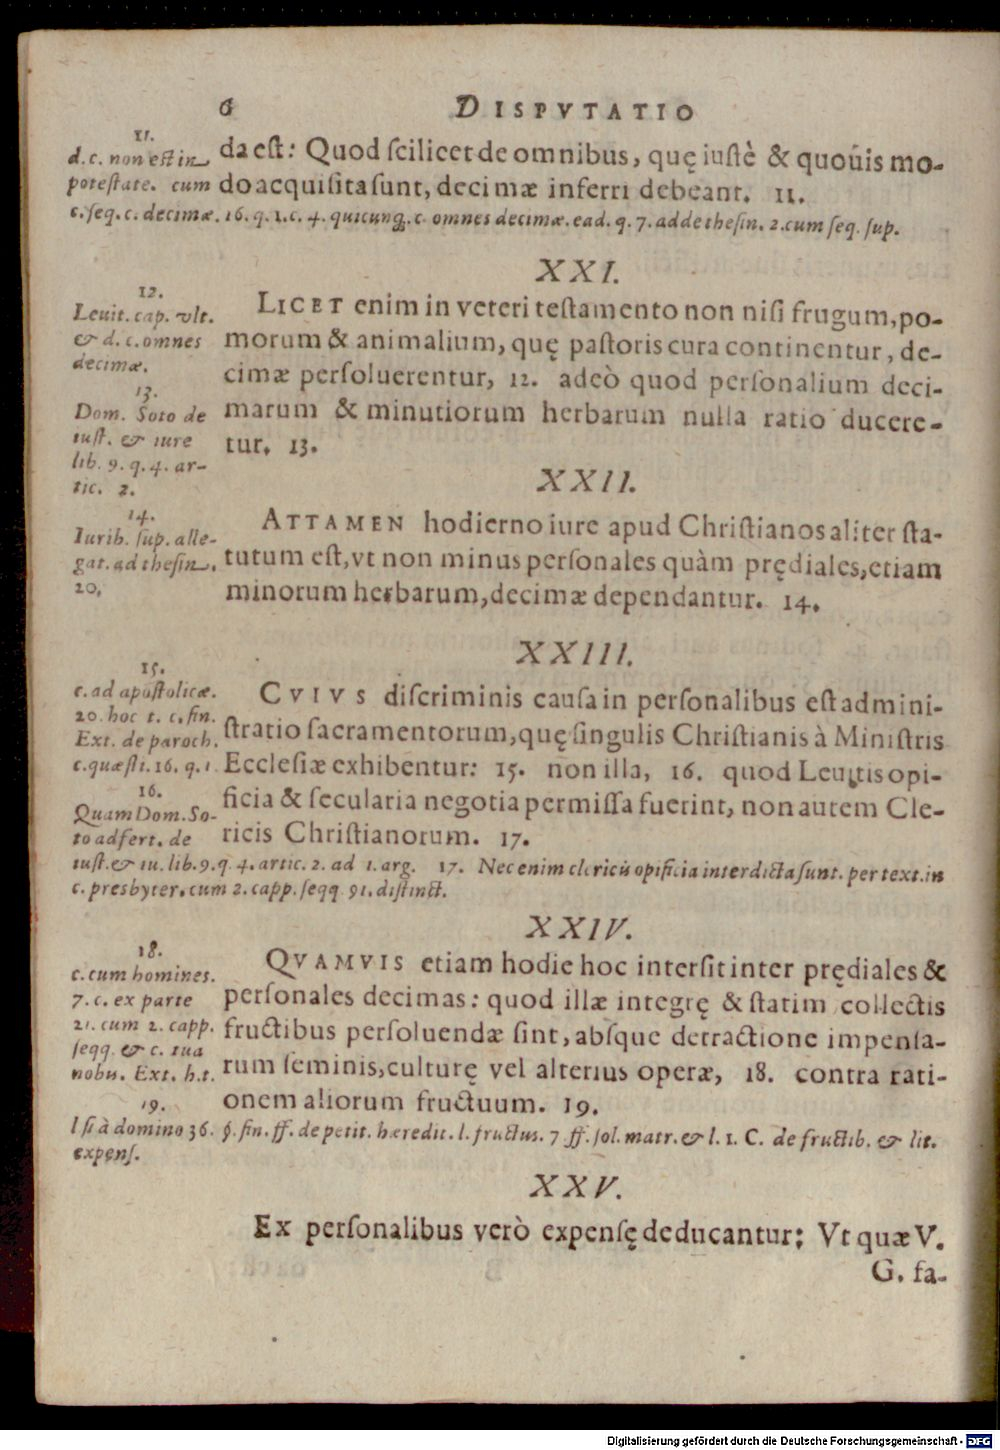 6 DISPVTATIO
11.
d. c. non est in
potestate. cum
da est: Quod scilicet de omnibus, quę iustè & quouis mo-
do acquisita sunt, decimæ inferri debeant. 11.
c. seq. c. decimæ. 16. q. 1. c. 4. quicunq. c. omnes decimæ. ead. q. 7. adde thesin. 2. cum seq. sup.
XXI.
12.
Leuit. cap. vlt.
& d. c. omnes
decimæ.
13.
Dom. Soto de
iust. & iure
lib. 9. q. 4. ar-
tic. 2.
LICET enim in veteri testamento non nisi frugum, po-
morum & animalium, quę pastoris cura continentur, de-
cimæ persoluerentur, 12. adeò quod personalium deci-
marum & minutiorum herbarum nulla ratio ducere-
tur. 13.
XXII.
14.
Iurib. sup. alle-
gat. ad thesin.
20.
ATTAMEN hodierno iure apud Christianos aliter sta-
tutum est, vt non minus personales quàm prędiales, etiam
minorum herbarum, decimæ dependantur. 14.
XXIII.
15.
c. ad apostolicæ.
20. hoc t. c. fin.
Ext. de paroch.
c. quæsti. 16. q. 1
16.
Quam Dom. So-
to adfert. de
CVIVS discriminis causa in personalibus est admini-
stratio sacramentorum, quę singulis Christianis à Ministris
Ecclesiæ exhibentur: 15. non illa, 16. quod Leuitis opi-
ficia & secularia negotia permissa fuerint, non autem Cle-
ricis Christianorum. 17.
iust. & iu. lib. 9. q. 4. artic. 2. ad 1. arg. 17. Nec enim clericis opificia interdicta sunt. per text. in
c. presbyter. cum 2. capp. seqq. 91. distinct.
XXIV.
18.
c. cum homines.
7. c. ex parte
21. cum 2. capp.
seqq. & c. tua
nobis. Ext. h. t.
19.
QVAMVIS etiam hodie hoc intersit inter prędiales &
personales decimas: quod illæ integrę & statim collectis
fructibus persoluendæ sint, absque detractione impensa-
rum seminis, culturę vel alterius operæ, 18. contra rati-
onem aliorum fructuum. 19.
l. si à domino 36. §. fin. ff. de petit. hæredit. l. fructus. 7 ff. sol. matr. & l. 1. C. de fructib. & lit.
expens.
XXV.
Ex personalibus verò expensę deducantur: Vt quæ V.
G. fa-
Digitalisierung gefördert durch die Deutsche Forschungsgemeinschaft - DFG